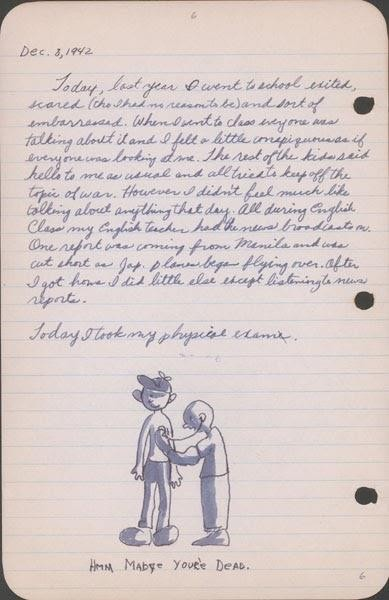 6
Dec. 8, 1942
Today, last year I went to school exited,
scared (tho I had no reason to be) and sort of
embarrassed. When I went to class everyone was
talking about it and I felt a little conspiquous as if
everyone was looking at me. The rest of the kids said
hello to me as usual and all tried to keep off the
topic of war. However I didn't feel much like
talking about anything that day. All during English
Class my English teacher had the news broadcasts on.
One report was coming from Manila and was
cut short as Jap. planes began flying over. After
I got home I did little else except listening to news
reports.
Today I took my physical exams.
HMM MABYE YOUR'E DEAD.
6